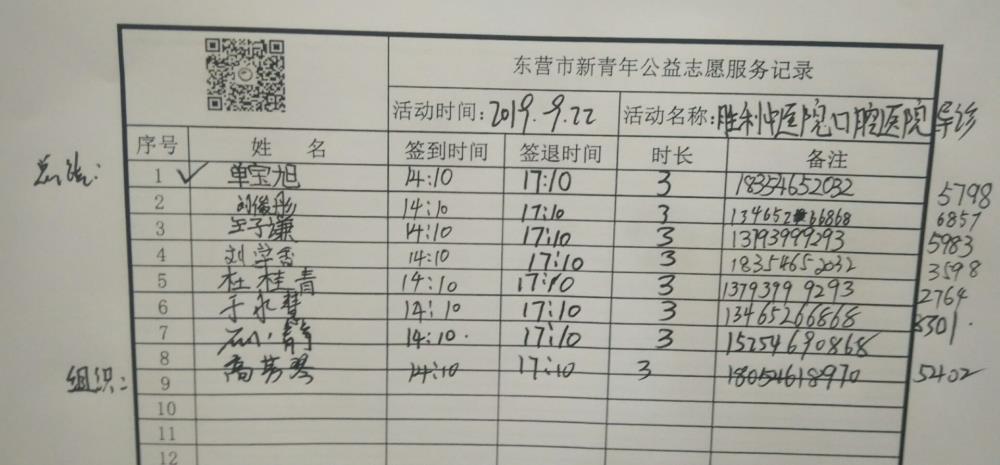 东营市新青年公益志愿服务记录
活动时间:2019.9.22 活动名称:胜利中医院口腔医院导诊
序号 姓 名 签到时间 签退时间 时长 备注
1 ✓ 单宝旭 14:10 17:10 3 18354652032 5798
2 刘俊彤 14:10 17:10 3 13465266868 6857
3 王子谦 14:10 17:10 3 13793999293 5983
4 刘学香 14:10 17:10 3 18354652032 3598
5 杜桂青 14:10 17:10 3 13793999293 2764
6 于永慧 14:10 17:10 3 13465266868 8301.
7 石小静 14:10. 17:10 3 15254690868
8
组织: 9 高芳琴 14:10 17:10 3 18054618970 5402
10
11
12